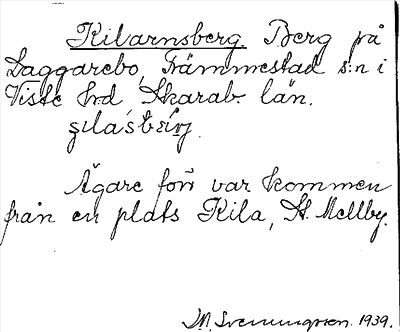 Kilarnsberg. Berg på
Laggarebo, Främmestad s:n i
Viste hd, Skarab. län.
Ägare förr var kommen
från en plats Kila, St. Mellby.
1939.